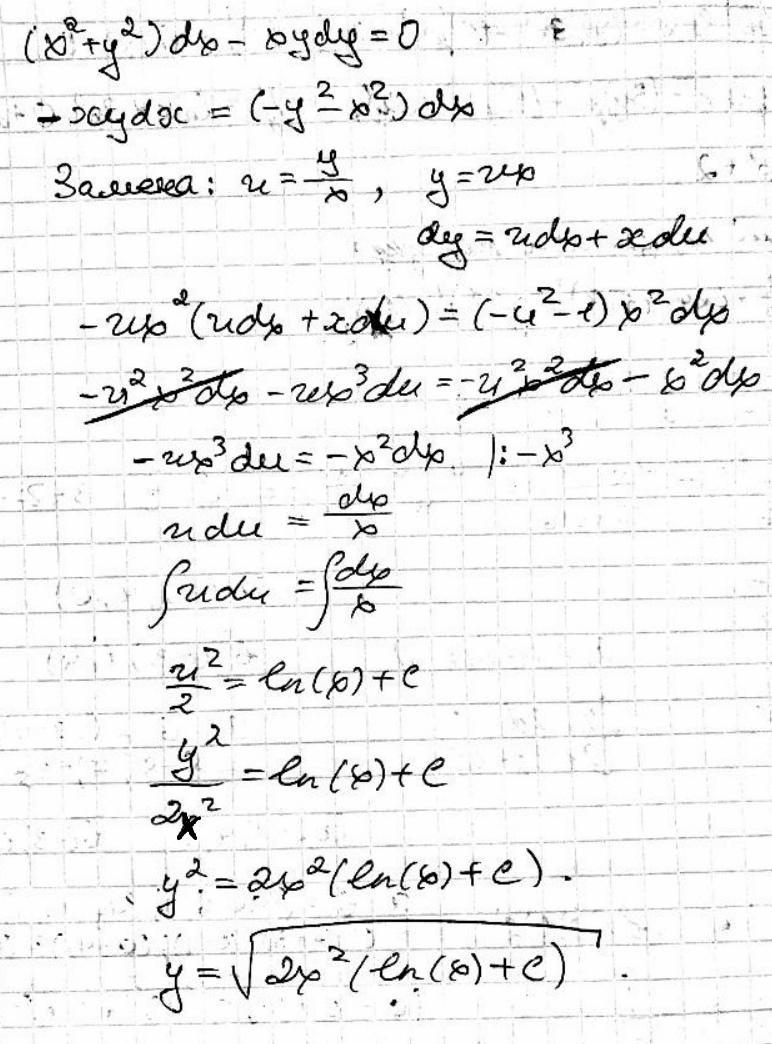 (x²+y²)dx - xydy = 0
-xydx = (-y²-x²)dx
Замена: u = y/x, y = ux
dy = udx + xdu
-ux²(udx + xdu) = (-u²-1)x²dx
-u²x²dx - ux³du = -u²x²dx - x²dx
-ux³du = -x²dx |: -x³
udu = dx/x
∫udu = ∫dx/x
u²/2 = ln(x) + C
y²/2x² = ln(x) + C
y² = 2x²(ln(x) + C).
y = √(2x²(ln(x) + C)).